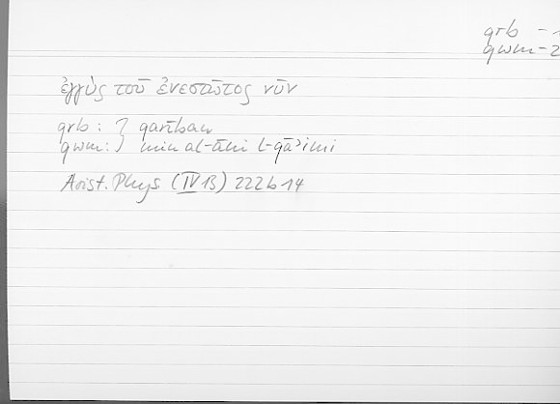 qrb - 1
qwm - 2
ἐγγὺς τοῦ ἐνεστῶτος νῦν
qrb : } qarīban
qwm : } min al-āni l-qāʾimi
Arist. Phys (IV 13) 222b14